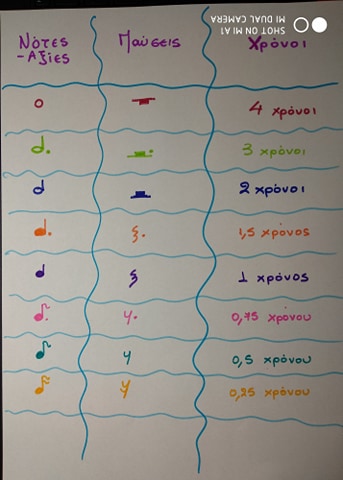 Νότες
-Αξίες
Παύσεις
Χρόνοι
SHOT ON MI A1
MI DUAL CAMERA
4 χρόνοι
3 χρόνοι
2 χρόνοι
1,5 χρόνος
1 χρόνος
0,75 χρόνου
0,5 χρόνου
0,25 χρόνου